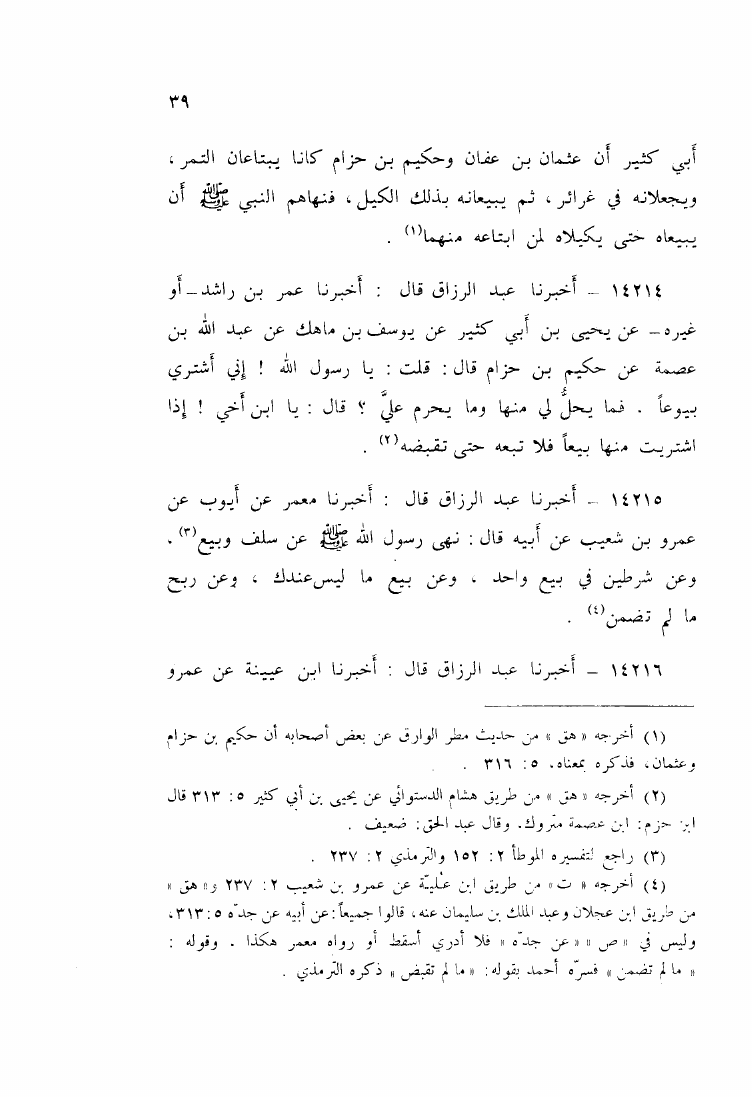 ٣٩
أبي كثير أن عثمان بن عفان وحكيم بن حزام كانا يبتاعان التمر ،
ويجعلانه في غرائر ، ثم يبيعانه بذلك الكيل ، فنهاهم النبي ﷺ أن
يبيعاه حتى يكيلاه لمن ابتاعه منهما(١) .
١٤٢١٤ – أخبرنا عبد الرزاق قال : أخبرنا عمر بن راشد – أو
غيره – عن يحيى بن أبي كثير عن يوسف بن ماهك عن عبد الله بن
عصمة عن حكيم بن حزام قال : قلت : يا رسول الله ! إني أشتري
بيوعاً . فما يحلُّ لي منها وما يحرم عليَّ ؟ قال : يا ابن أخي ! إذا
اشتريت منها بيعاً فلا تبعه حتى تقبضه(٢) .
١٤٢١٥ – أخبرنا عبد الرزاق قال : أخبرنا معمر عن أيوب عن
عمرو بن شعيب عن أبيه قال : نهى رسول الله ﷺ عن سلف وبيع(٣) ،
وعن شرطين في بيع واحد ، وعن بيع ما ليس عندك ، وعن ربح
ما لم تضمن(٤) .
١٤٢١٦ – أخبرنا عبد الرزاق قال : أخبرنا ابن عيينة عن عمرو
(١) أخرجه « هق » من حديث مطر الوارق عن بعض أصحابه أن حكيم بن حزام
وعثمان، فذكره بمعناه، ٥: ٣١٦ .
(٢) أخرجه « هق » من طريق هشام الدستوائي عن يحيى بن أبي كثير ٥: ٣١٣ قال
ابن حزم: ابن عصمة متروك. وقال عبد الحق: ضعيف .
(٣) راجع لتفسيره الموطأ ٢: ١٥٢ والترمذي ٢: ٢٣٧ .
(٤) أخرجه « ت » من طريق ابن عُليّة عن عمرو بن شعيب ٢: ٢٣٧ و« هق »
من طريق ابن عجلان وعبد الملك بن سليمان عنه، قالوا جميعاً: عن أبيه عن جدّه ٥: ٣١٣،
وليس في « ص » « عن جدّه » فلا أدري أسقط أو رواه معمر هكذا . وقوله :
« ما لم تضمن » فسرّه أحمد بقوله: « ما لم تقبض » ذكره الترمذي .